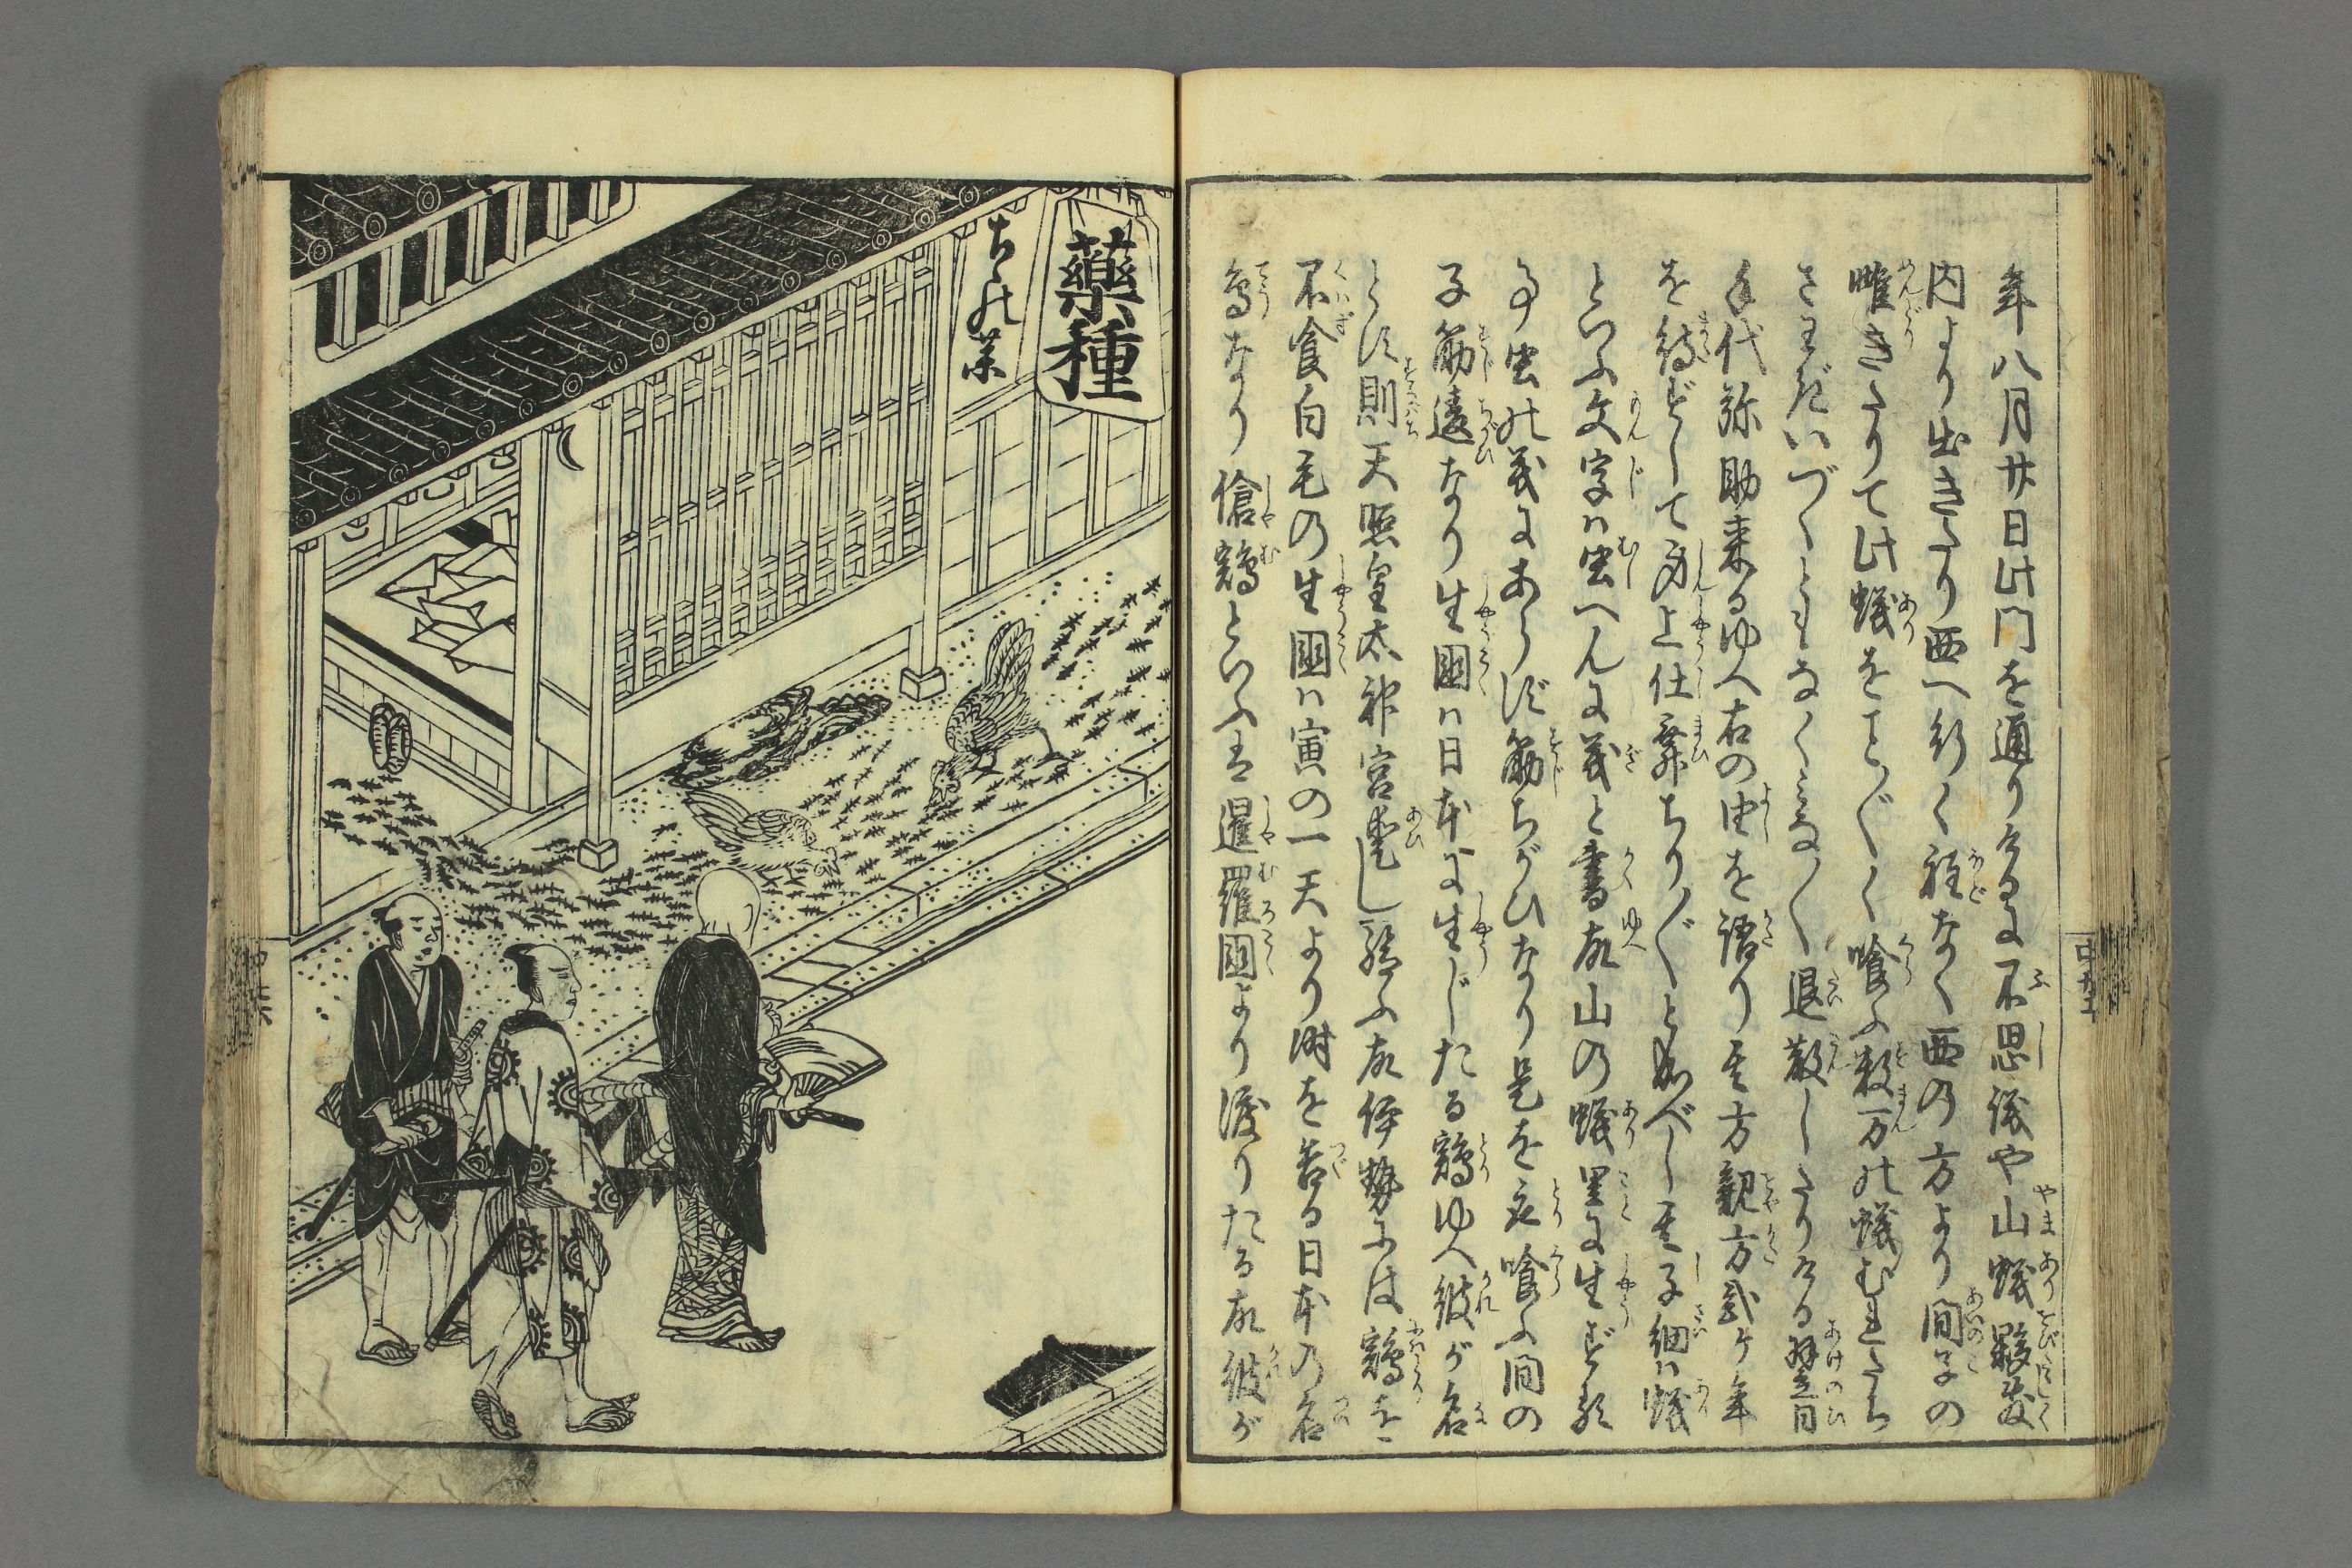 年八月廿日此門を通りけるに不思議や山蟻夥敷
内より出きたり西へ行く程なく西の方より間子の
雌きたりて此蟻をことごとく喰ふ数万の蟻むれたち
さわぎいづくともなくみな〳〵退散したりける翌日
手代弥助来るゆへ右の由を語り其方親方弐ケ年
を待ずして身上仕舞ちり〴〵と成べし其子細は蟻
といふ文字は虫へんに義と書故山の蟻里に生ずる
事虫の義にあらず筋ちがひなり是を取喰ふ間の
子筋違なり生国は日本に生じたる鶏ゆへ彼が名
とす則天照皇太神宮愛し給ふ故伊勢には鶏を
不食白毛の生国は寅の一天より時を告る日本の名
鳥なり傖鶏といふは暹羅国より渡りたる故彼が
藥種
ちの薬
中五
中六